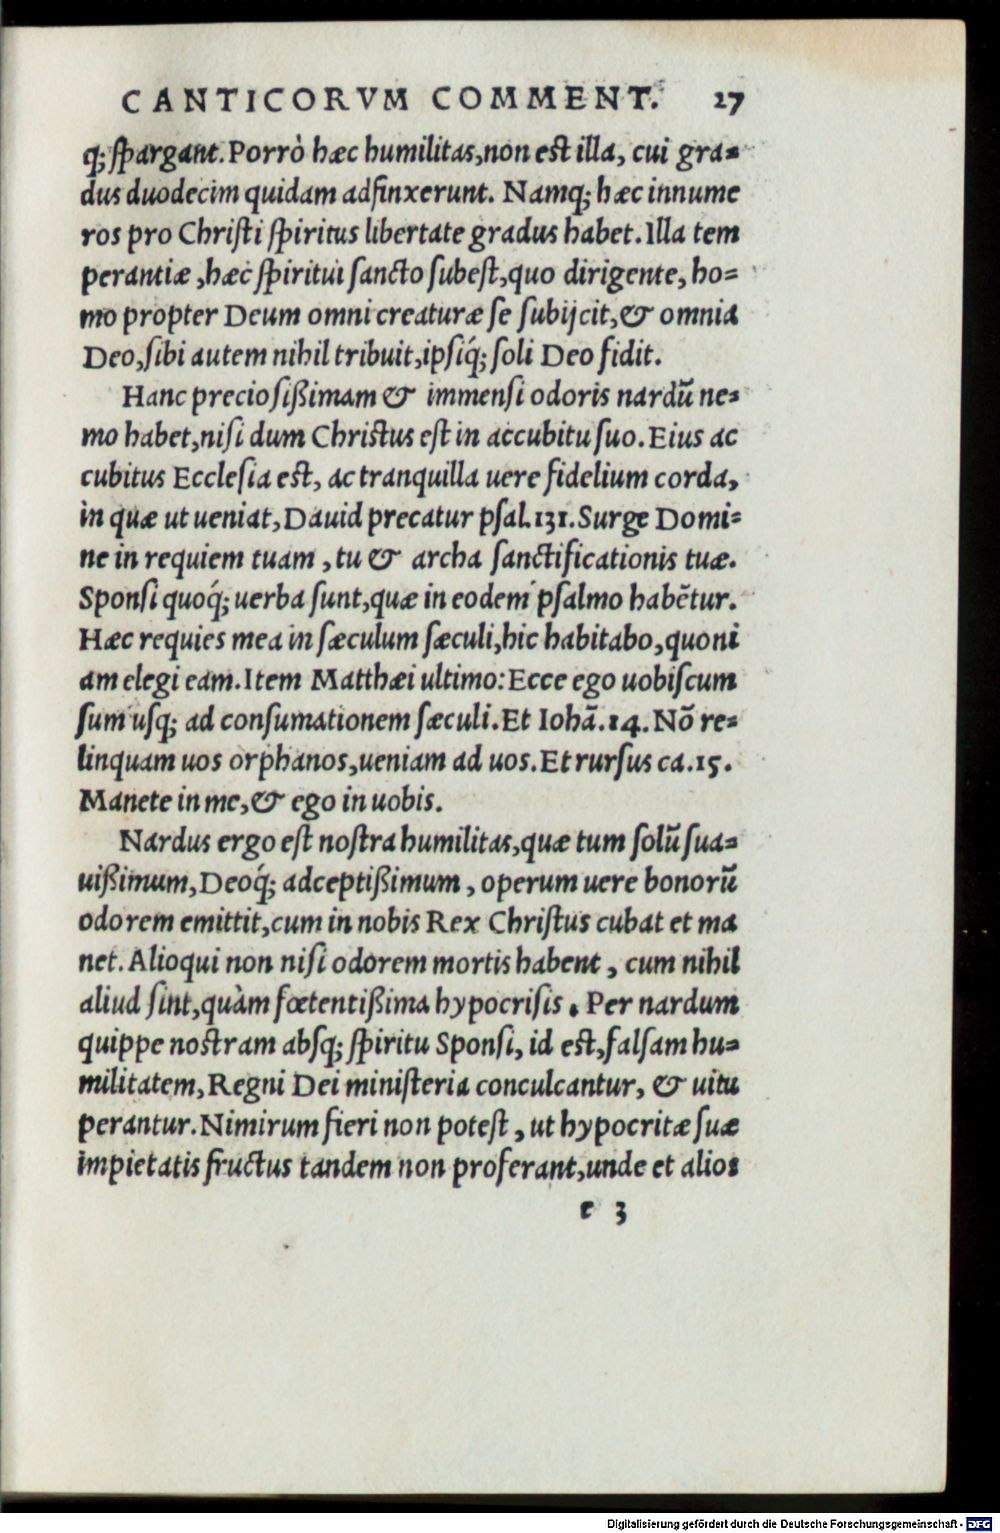 CANTICORVM COMMENT. 27
q; spargant. Porrò hæc humilitas, non est illa, cui gra=
dus duodecim quidam adfinxerunt. Namq; hæc innume
ros pro Christi spiritus libertate gradus habet. Illa tem
perantiæ, hæc spiritui sancto subest, quo dirigente, ho=
mo propter Deum omni creaturæ se subijcit, & omnia
Deo, sibi autem nihil tribuit, ipsiq́; soli Deo fidit.
Hanc preciosißimam & immensi odoris nardũ ne=
mo habet, nisi dum Christus est in accubitu suo. Eius ac
cubitus Ecclesia est, ac tranquilla uere fidelium corda,
in quæ ut ueniat, Dauid precatur psal.131. Surge Domi=
ne in requiem tuam, tu & archa sanctificationis tuæ.
Sponsi quoq́; uerba sunt, quæ in eodem psalmo habẽtur.
Hæc requies mea in sæculum sæculi, hic habitabo, quoni
am elegi eam. Item Matthæi ultimo: Ecce ego uobiscum
sum usq; ad consumationem sæculi. Et Iohã.14. Nõ re=
linquam uos orphanos, ueniam ad uos. Et rursus ca.15.
Manete in me, & ego in uobis.
Nardus ergo est nostra humilitas, quæ tum solũ sua=
uißimum, Deoq́; adceptißimum, operum uere bonorũ
odorem emittit, cum in nobis Rex Christus cubat et ma
net. Alioqui non nisi odorem mortis habent, cum nihil
aliud sint, quàm fœtentißima hypocrisis. Per nardum
quippe nostram absq; spiritu Sponsi, id est, falsam hu=
militatem, Regni Dei ministeria conculcantur, & uitu
perantur. Nimirum fieri non potest, ut hypocritæ suæ
impietatis fructus tandem non proferant, unde et alios
e 3
Digitalisierung gefördert durch die Deutsche Forschungsgemeinschaft - DFG